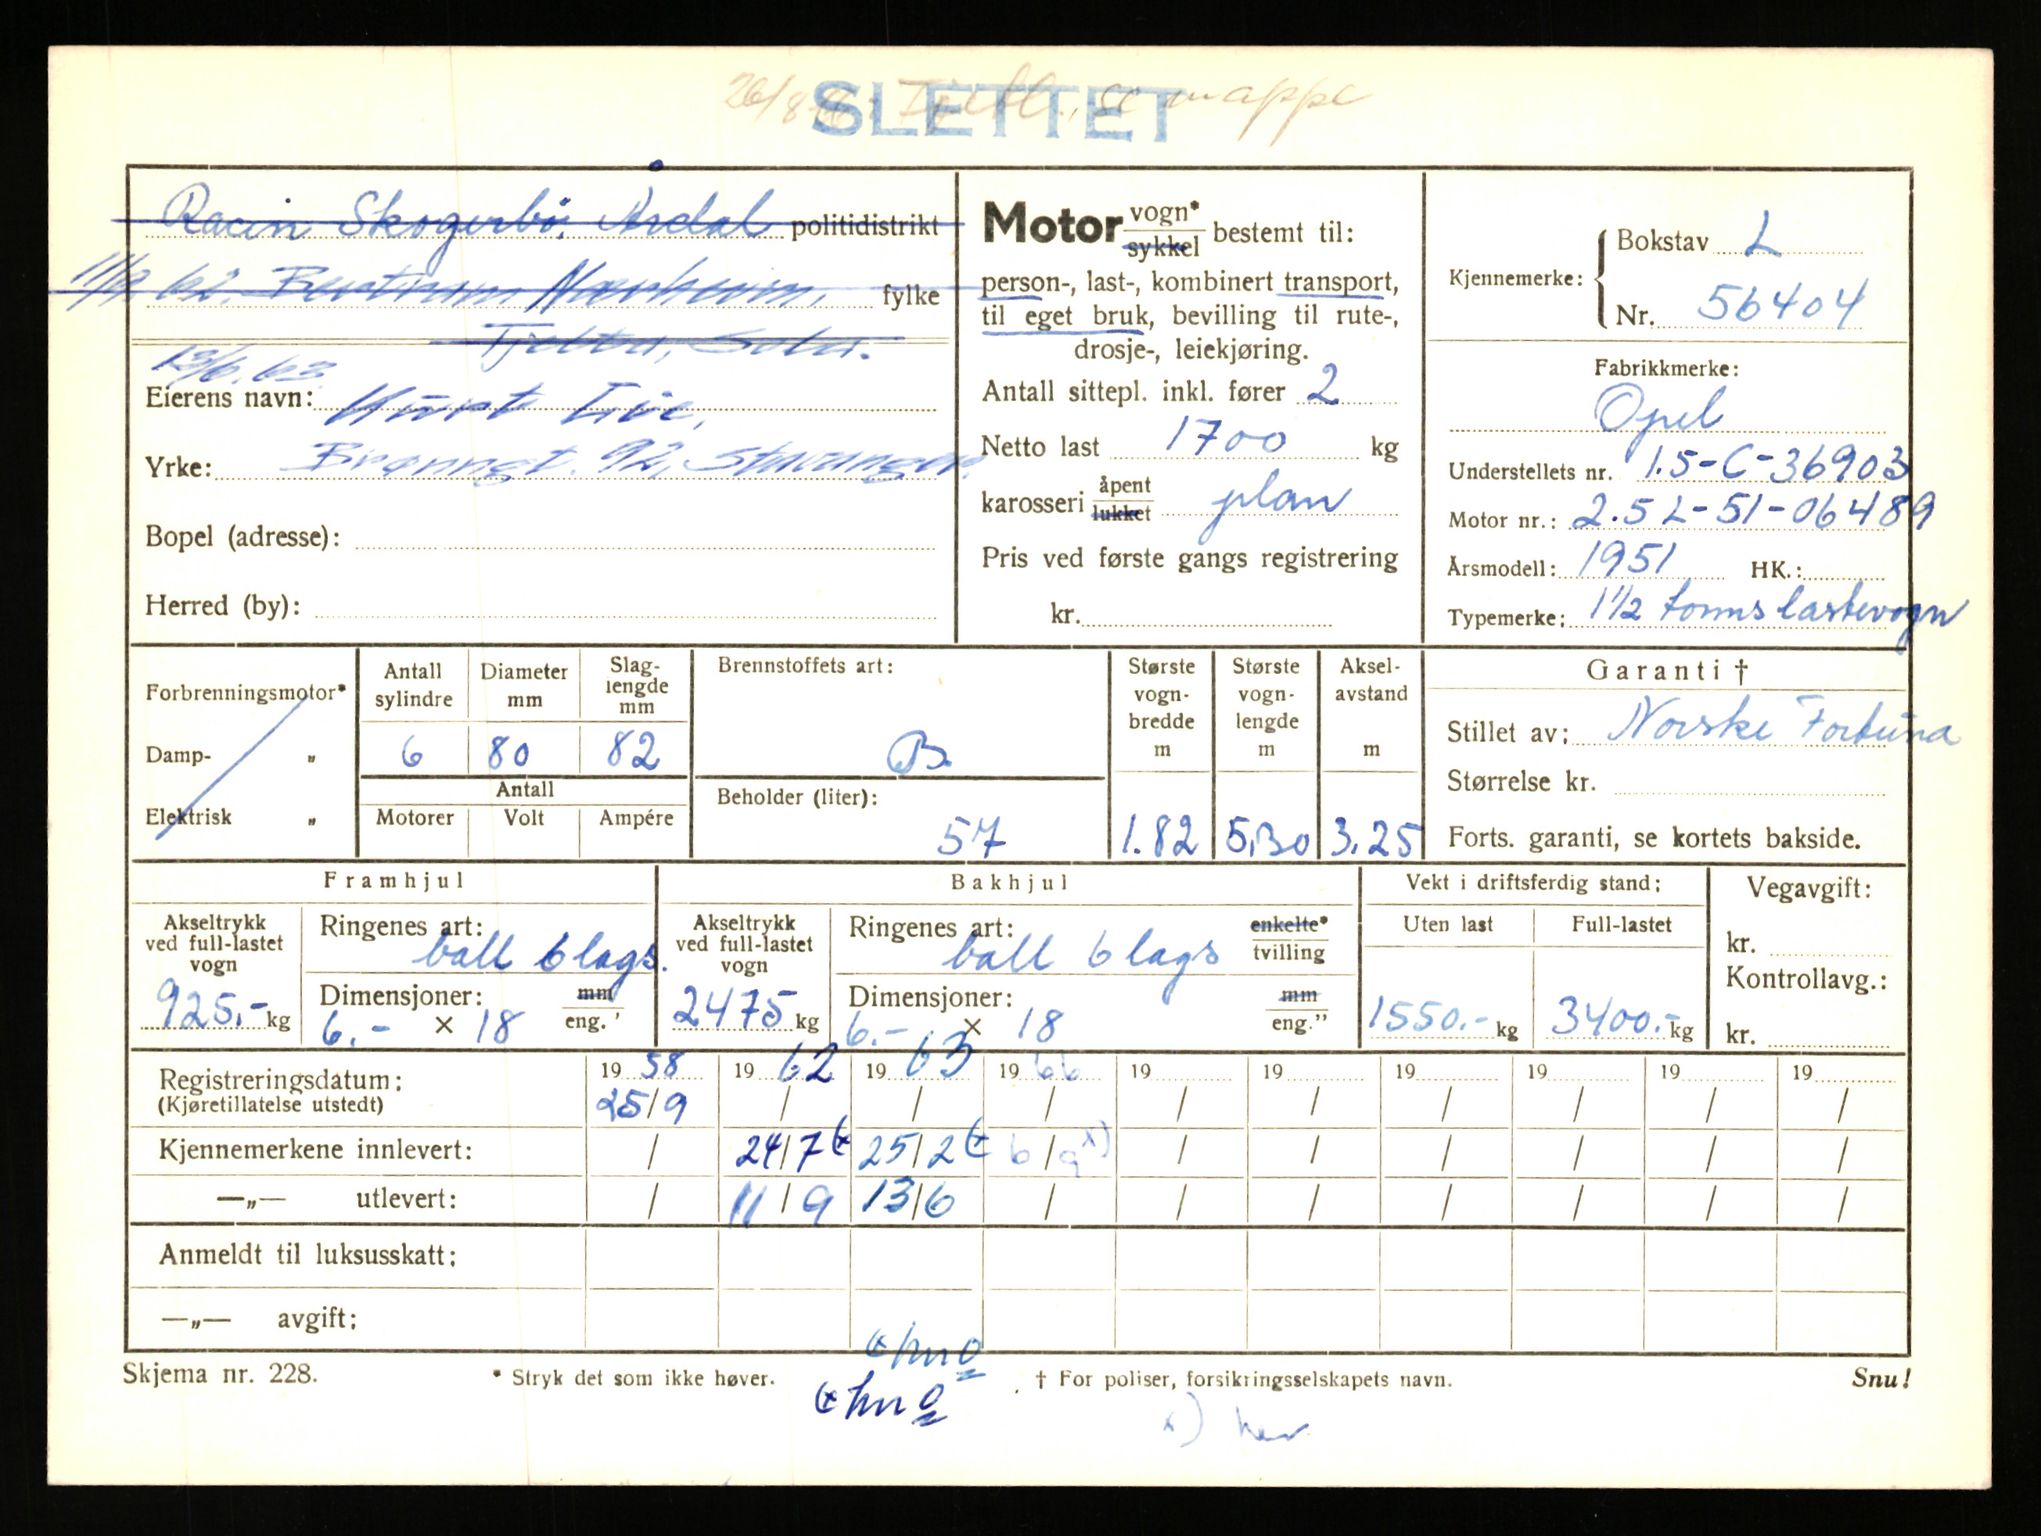 SLETTET
Racin Skogerbö, Årdal politidistrikt
11/9 62. Bertram Nærheim, fylke
Tjelta, Sola.
13/6.63.
Eierens navn: Kurt Lie,
Yrke: Brønngt. 92, Stavanger.
Bopel (adresse):
Herred (by):
Motor vogn* sykkel bestemt til:
person-, last-, kombinert transport,
til eget bruk, bevilling til rute-,
drosje-, leiekjøring.
Antall sittepl. inkl. fører 2
Netto last 1700 kg
karosseri åpent lukket plan
Pris ved første gangs registrering
kr.
Kjennemerke: Bokstav L
Nr. 56404
Fabrikkmerke:
Opel
Understellets nr. 1.5-C-36903
Motor nr.: 2.5 L-51-06489
Årsmodell: 1951 HK.:
Typemerke: 1 1/2 tonns lastevogn
Forbrenningsmotor*
Damp- „
Elektrisk „
Antall sylindre 6
Diameter mm 80
Slag-lengde mm 82
Antall
Motorer Volt Ampére
Brennstoffets art:
B.
Beholder (liter):
57
Største vogn-bredde m 1.82
Største vogn-lengde m 5.30
Aksel-avstand m 3.25
Garanti †
Stillet av: Norske Fortuna
Størrelse kr.
Forts. garanti, se kortets bakside.
Framhjul
Akseltrykk ved full-lastet vogn 925.- kg
Ringenes art: ball 6 lags.
Dimensjoner: mm eng.'
6.- × 18
Bakhjul
Akseltrykk ved full-lastet vogn 2475 kg
Ringenes art: ball 6 lags enkelte* tvilling
Dimensjoner: mm eng."
6.- × 18
Vekt i driftsferdig stand:
Uten last Full-lastet
1550.- kg 3400.- kg
Vegavgift:
kr.
Kontrollavg.:
kr.
Registreringsdatum: 19 58 19 62 19 63 19 66 19 19 19 19 19 19
(Kjøretillatelse utstedt) 25/9 / / / / / / / / /
Kjennemerkene innlevert: / 24/7 25/2 6/9 x) / / / / / /
—„— utlevert: / 11/9 13/6 / / / / / / /
Anmeldt til luksusskatt:
—„— avgift:
Skjema nr. 228.
* Stryk det som ikke høver.
† For poliser, forsikringsselskapets navn.
Snu!
x) her